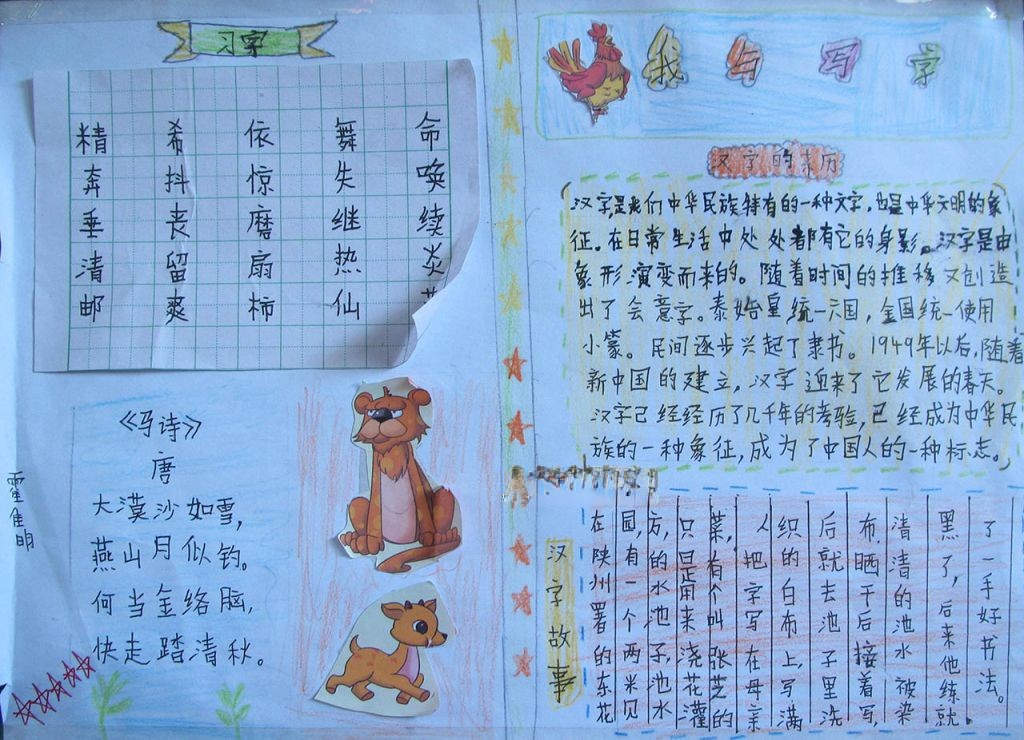 习字
精 希 依 舞 命
奔 抖 惊 失 唤
垂 丧 磨 继 续
清 留 扇 热 炎
邮 爽 柿 仙
《马诗》
唐
大漠沙如雪，
燕山月似钩。
何当金络脑，
快走踏清秋。
霍佳明
我与写字
汉字的来历
汉字是我们中华民族特有的一种文字，也是中华文明的象
征。在日常生活中处处都有它的身影。汉字是由
象形演变而来的。随着时间的推移又创造
出了会意字。秦始皇统一六国，全国统一使用
小篆。民间逐步兴起了隶书。1949年以后，随着
新中国的建立，汉字迎来了它发展的春天。
汉字已经经历了几千年的考验，已经成为中华民
族的一种象征，成为了中国人的一种标志。
汉字故事
在陕州署的东花
园，有一个两米见
方，的水池子，池水
只是用来浇花灌
菜，有个叫张芝的
人把字写在母亲
织的白布上，写满
后就去池子里洗
布，晒干后接着写，
清清的池水被染
黑了，后来他练就
了一手好书法。